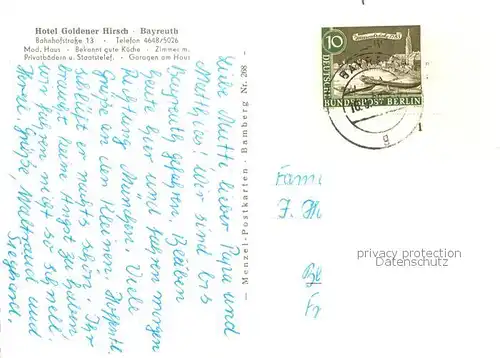 Hotel Goldener Hirsch · Bayreuth
Bahnhofstraße 13 · Telefon 4648/5026
Mod. Haus · Bekannt gute Küche · Zimmer m.
Privatbädern u. Staatstelef. · Garagen am Haus
Liebe Mutti, lieber Papa und
Matthias! Wir sind bis
Bayreuth gefahren. Bleiben
heute hier und fahren morgen
Richtung München. Viele
Grüße an den Kleinen. Hoffentl.
schläft er nachts schön. Ihr
braucht keine Angst zu haben,
wir fahren nicht so schnell.
Herzl. Grüße, Waltraud und
Siegfried.
Menzel-Postkarten · Bamberg Nr. 268
10
DEUTSCHE
BUNDESPOST BERLIN
BAYRE
1
g
Fam
J. M
privacy protection
veryimportantlot.com